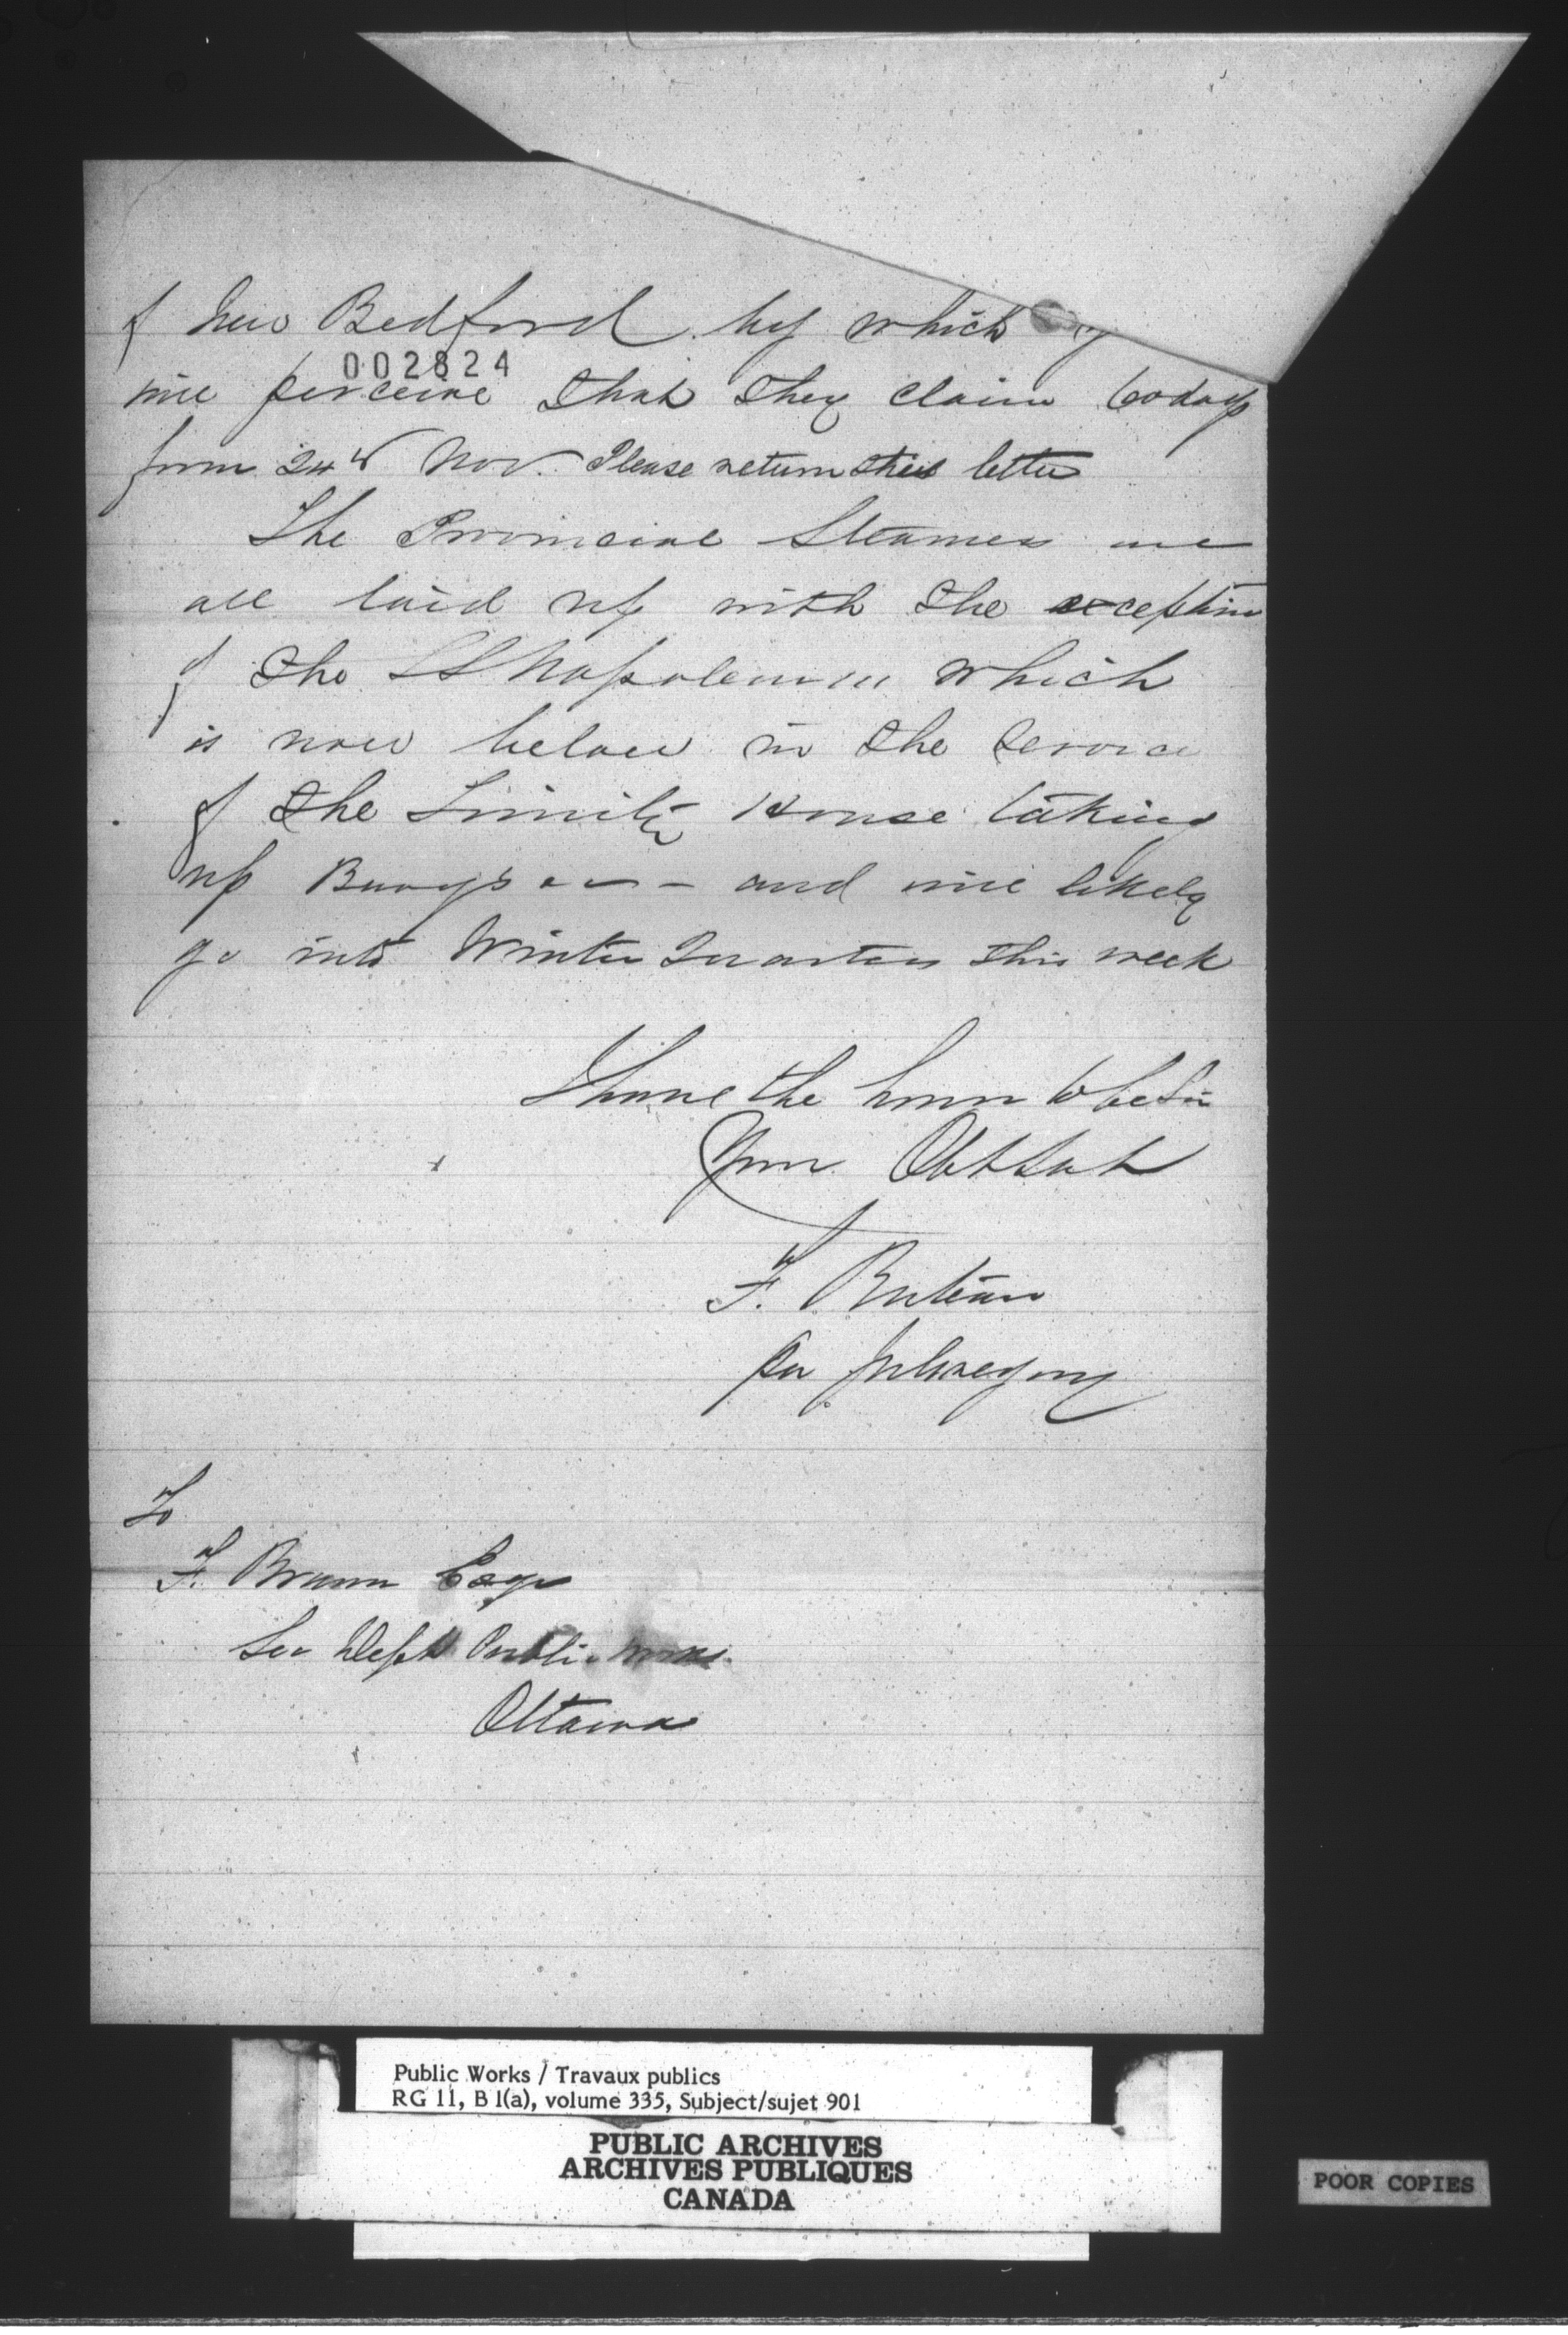 of New Bedford by which y
will perceive that they claim 60 days
from 24th Nov. Please return this letter
The Provincial Steamers are
all laid up with the exception
of the SS Napoleon III which
is now below in the service
of the Trinity House taking
up Buoys &c - and will likely
go into Winter Quarters this week
I have the honor to be Sir
Your Obt Svt
F. Buteau
per
To
F. Braun Esqr
Sec Dept Public Works.
Ottawa
002824
Public Works / Travaux publics
RG 11, B 1(a), volume 335, Subject/sujet 901
PUBLIC ARCHIVES
ARCHIVES PUBLIQUES
CANADA
POOR COPIES